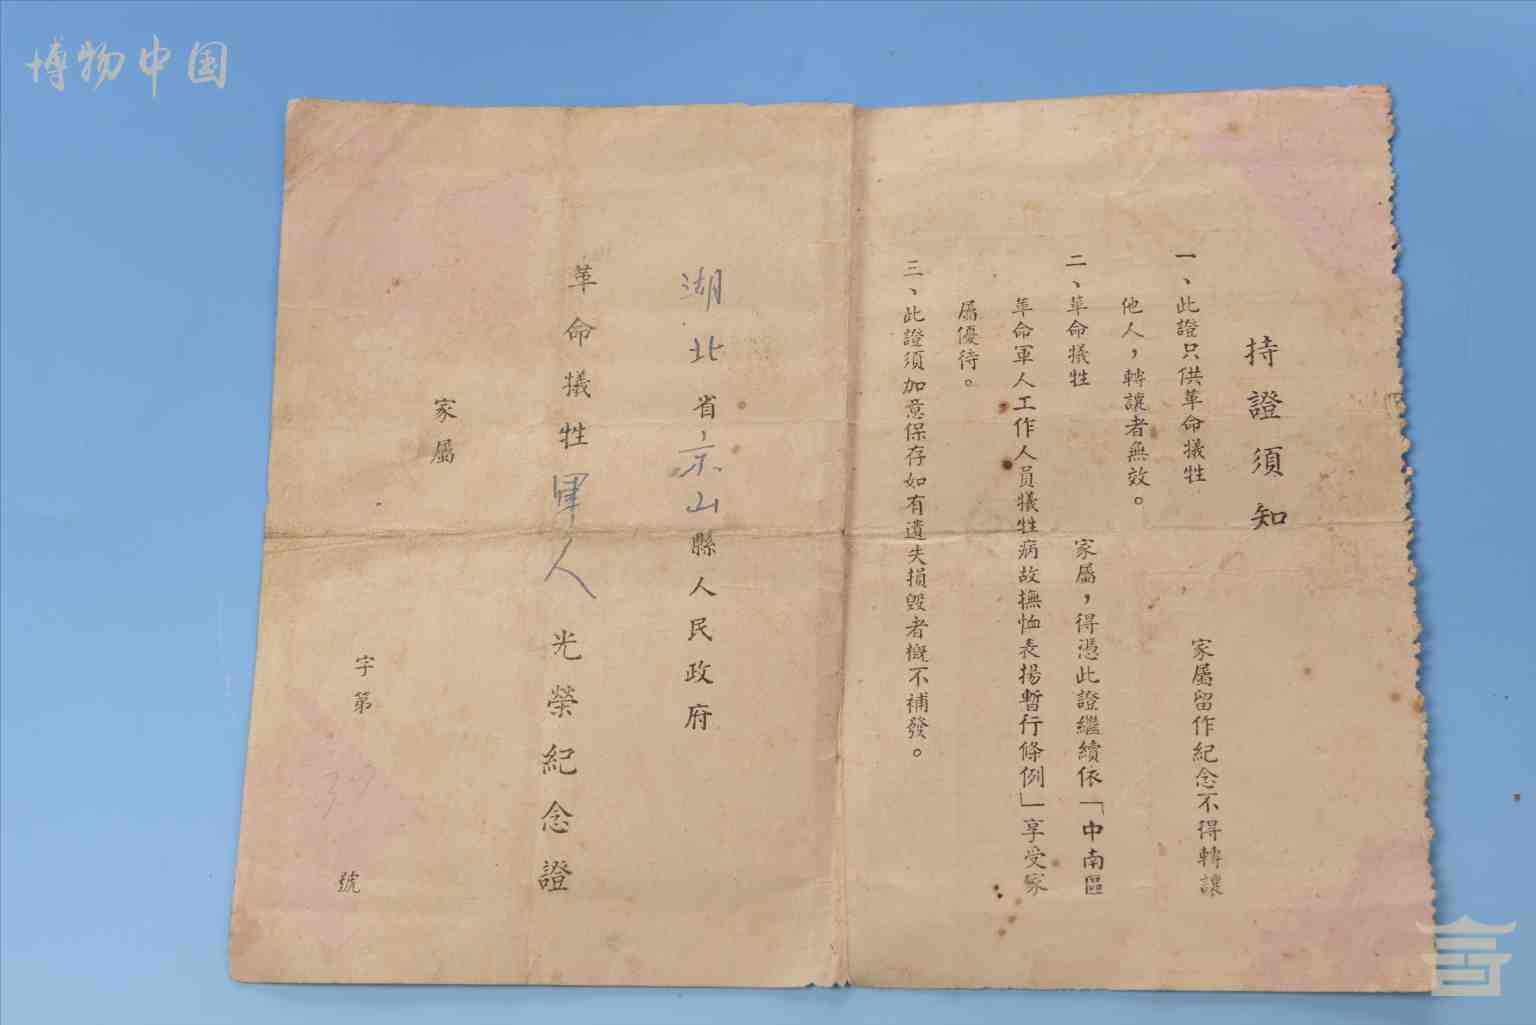 博物中国
持證須知
一、此證只供革命犧牲 家屬留作紀念不得轉讓
他人，轉讓者無效。
二、革命犧牲 家屬，得憑此證繼續依「中南區
革命軍人工作人員犧牲病故撫恤表揚暫行條例」享受家
屬優待。
三、此證須加意保存如有遺失損毀者概不補發。
湖北省京山縣人民政府
革命犧牲軍人光榮紀念證
家屬
字第 號